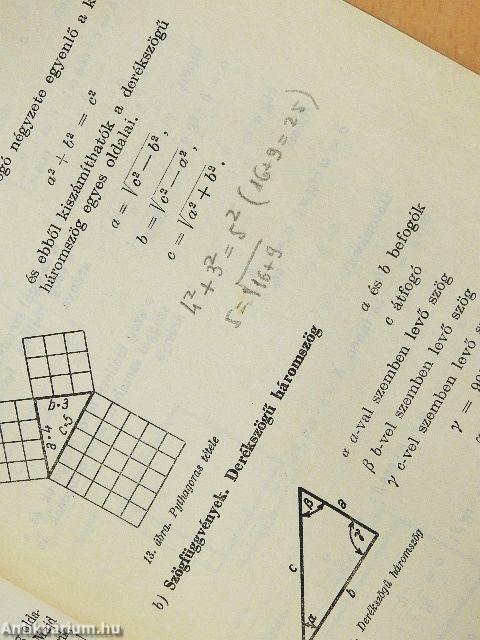 négyzete egyenlő a
a² + b² = c²
és ebből kiszámíthatók a derékszögű
háromszög egyes oldalai.
a = √c² − b²,
b = √c² − a²,
c = √a² + b².
4² + 3² = 5² (16+9=25)
5=√16+9
b·3
a·4
c·5
13. ábra. Pythagoras tétele
b) Szögfüggvények. Derékszögű háromszög
a és b befogók
c átfogó
α a-val szemben levő szög
β b-vel szemben levő szög
γ c-vel szemben levő
γ =
β
a
γ
c
b
α
Derékszögű háromszög
Antikvarium.hu